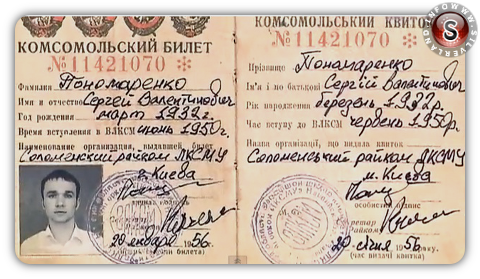 КОМСОМОЛЬСКИЙ БИЛЕТ
№11421070
Фамилия Пономаренко
Имя и отчество Сергей Валентинович
Год рождения март 1932 г.
Время вступления в ВЛКСМ июнь 1950 г.
Наименование организации, выдавшей билет
Соломенский райком ЛКСМУ
г. Киева
20 января 1956 г.
КОМСОМОЛЬСЬКИЙ КВИТОК
№11421070
Прізвище Пономаренко
Ім'я і по батькові Сергій Валентинович
Рік народження березень 1932 р.
Час вступу до ВЛКСМ червень 1950 р.
Назва організації, що видала квиток
Соломенський райком ЛКСМУ
м. Києва
особистий підпис
20 січня 1956 р.
(час видачі квитка)
S